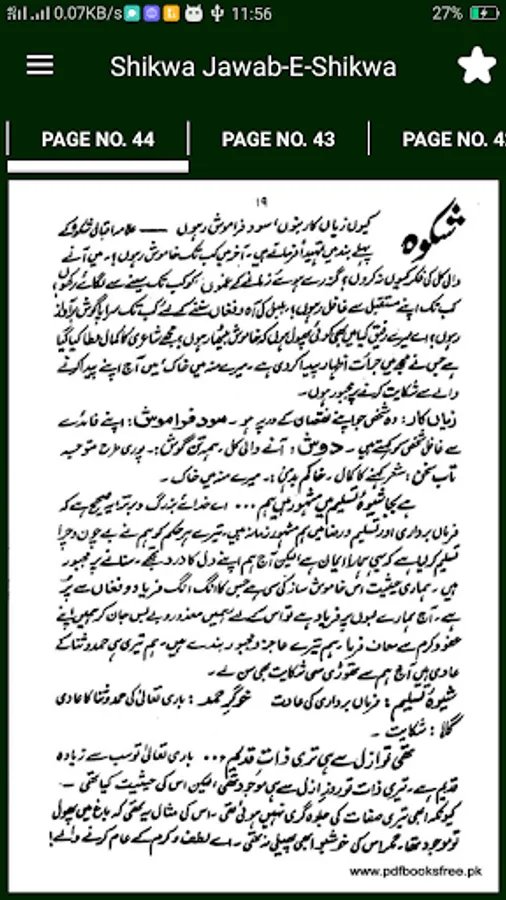 0.07KB/s 11:56 27%
Shikwa Jawab-E-Shikwa
PAGE NO. 44 PAGE NO. 43 PAGE NO. 4
۱۹
شکوہ
کیوں زیاں کار بنوں، سود فراموش رہوں — علامہ اقبال شکوہ کے
پہلے بند میں تمہیداً فرماتے ہیں۔ آخر میں کب تک خاموش رہوں؟ میں آنے
والی کل کی فکر کیوں نہ کروں؟ گزرے ہوئے زمانے کے غموں کو کب تک سینے سے لگائے رکھوں؟
کب تک اپنے مستقبل سے غافل رہوں؟ بلبل کی آہ و فغاں سننے کے لیے کب تک سراپا گوش بر آواز
رہوں؟ اے میرے رفیق کیا میں بھی کوئی پھول ہوں کہ خاموش بیٹھا رہوں؟ مجھے شاعری کا کمال عطا کیا گیا
ہے جس نے مجھ میں جرأت اظہار پیدا کر دی ہے۔ میرے منہ میں خاک، میں آج اپنے پیدا کرنے
والے سے شکایت کرنے پر مجبور ہوں۔
زیاں کار: وہ شخص جو اپنے نقصان کے درپے ہو۔ سود فراموش: اپنے فائدے
سے غافل شخص کو کہتے ہیں۔ دوش: آنے والی کل، ہمہ تن گوش: پوری طرح متوجہ
تاب سخن: شعر کہنے کا کمال۔ خاکم بدہن: میرے منہ میں خاک۔
ہے بجا شیوۂ تسلیم میں مشہور ہیں ہم ... اے خدائے بزرگ و برتر! یہ صحیح ہے کہ
فرماں برداری اور تسلیم و رضا میں ہم مشہور زمانہ ہیں، تیرے ہر حکم کو ہم نے بے چون و چرا
تسلیم کر لیا ہے کہ یہی ہمارا ایمان ہے لیکن آج ہم اپنے دل کا درد تجھے سنانے پر مجبور
ہیں۔ ہماری حیثیت اس خاموش ساز کی سی ہے جس کا انگ انگ فریاد و فغاں سے پُر
ہے۔ آج ہمارے لبوں پر فریاد ہے تو اس کے لیے ہمیں معذور و بے بس جان کر ہمیں اپنے
عفو و کرم سے معاف فرما۔ ہم تیرے عاجز و مجبور بندے ہیں، ہم تیری ہی حمد و ثنا کے
عادی ہیں آج ہم سے تھوڑی سی شکایت بھی سن لے۔
شیوۂ تسلیم: فرماں برداری کی عادت خوگر حمد: باری تعالیٰ کی حمد و ثنا کا عادی
گلا: شکایت۔
تھی تو ازل سے ہی تری ذات قدیم ... باری تعالیٰ تو سب سے زیادہ
قدیم ہے۔ تیری ذات تو روز ازل سے ہی موجود تھی لیکن اس کی حیثیت کیا تھی۔
کیونکہ ابھی تیری صفات کی جلوہ گری نہیں ہوئی تھی۔ اس کی مثال یہ تھی کہ باغ میں پھول
تو موجود تھا۔ مگر اس کی خوشبو ابھی پھیلی نہ تھی۔ اے لطف و کرم کے عام کرنے والے!
www.pdfbooksfree.pk